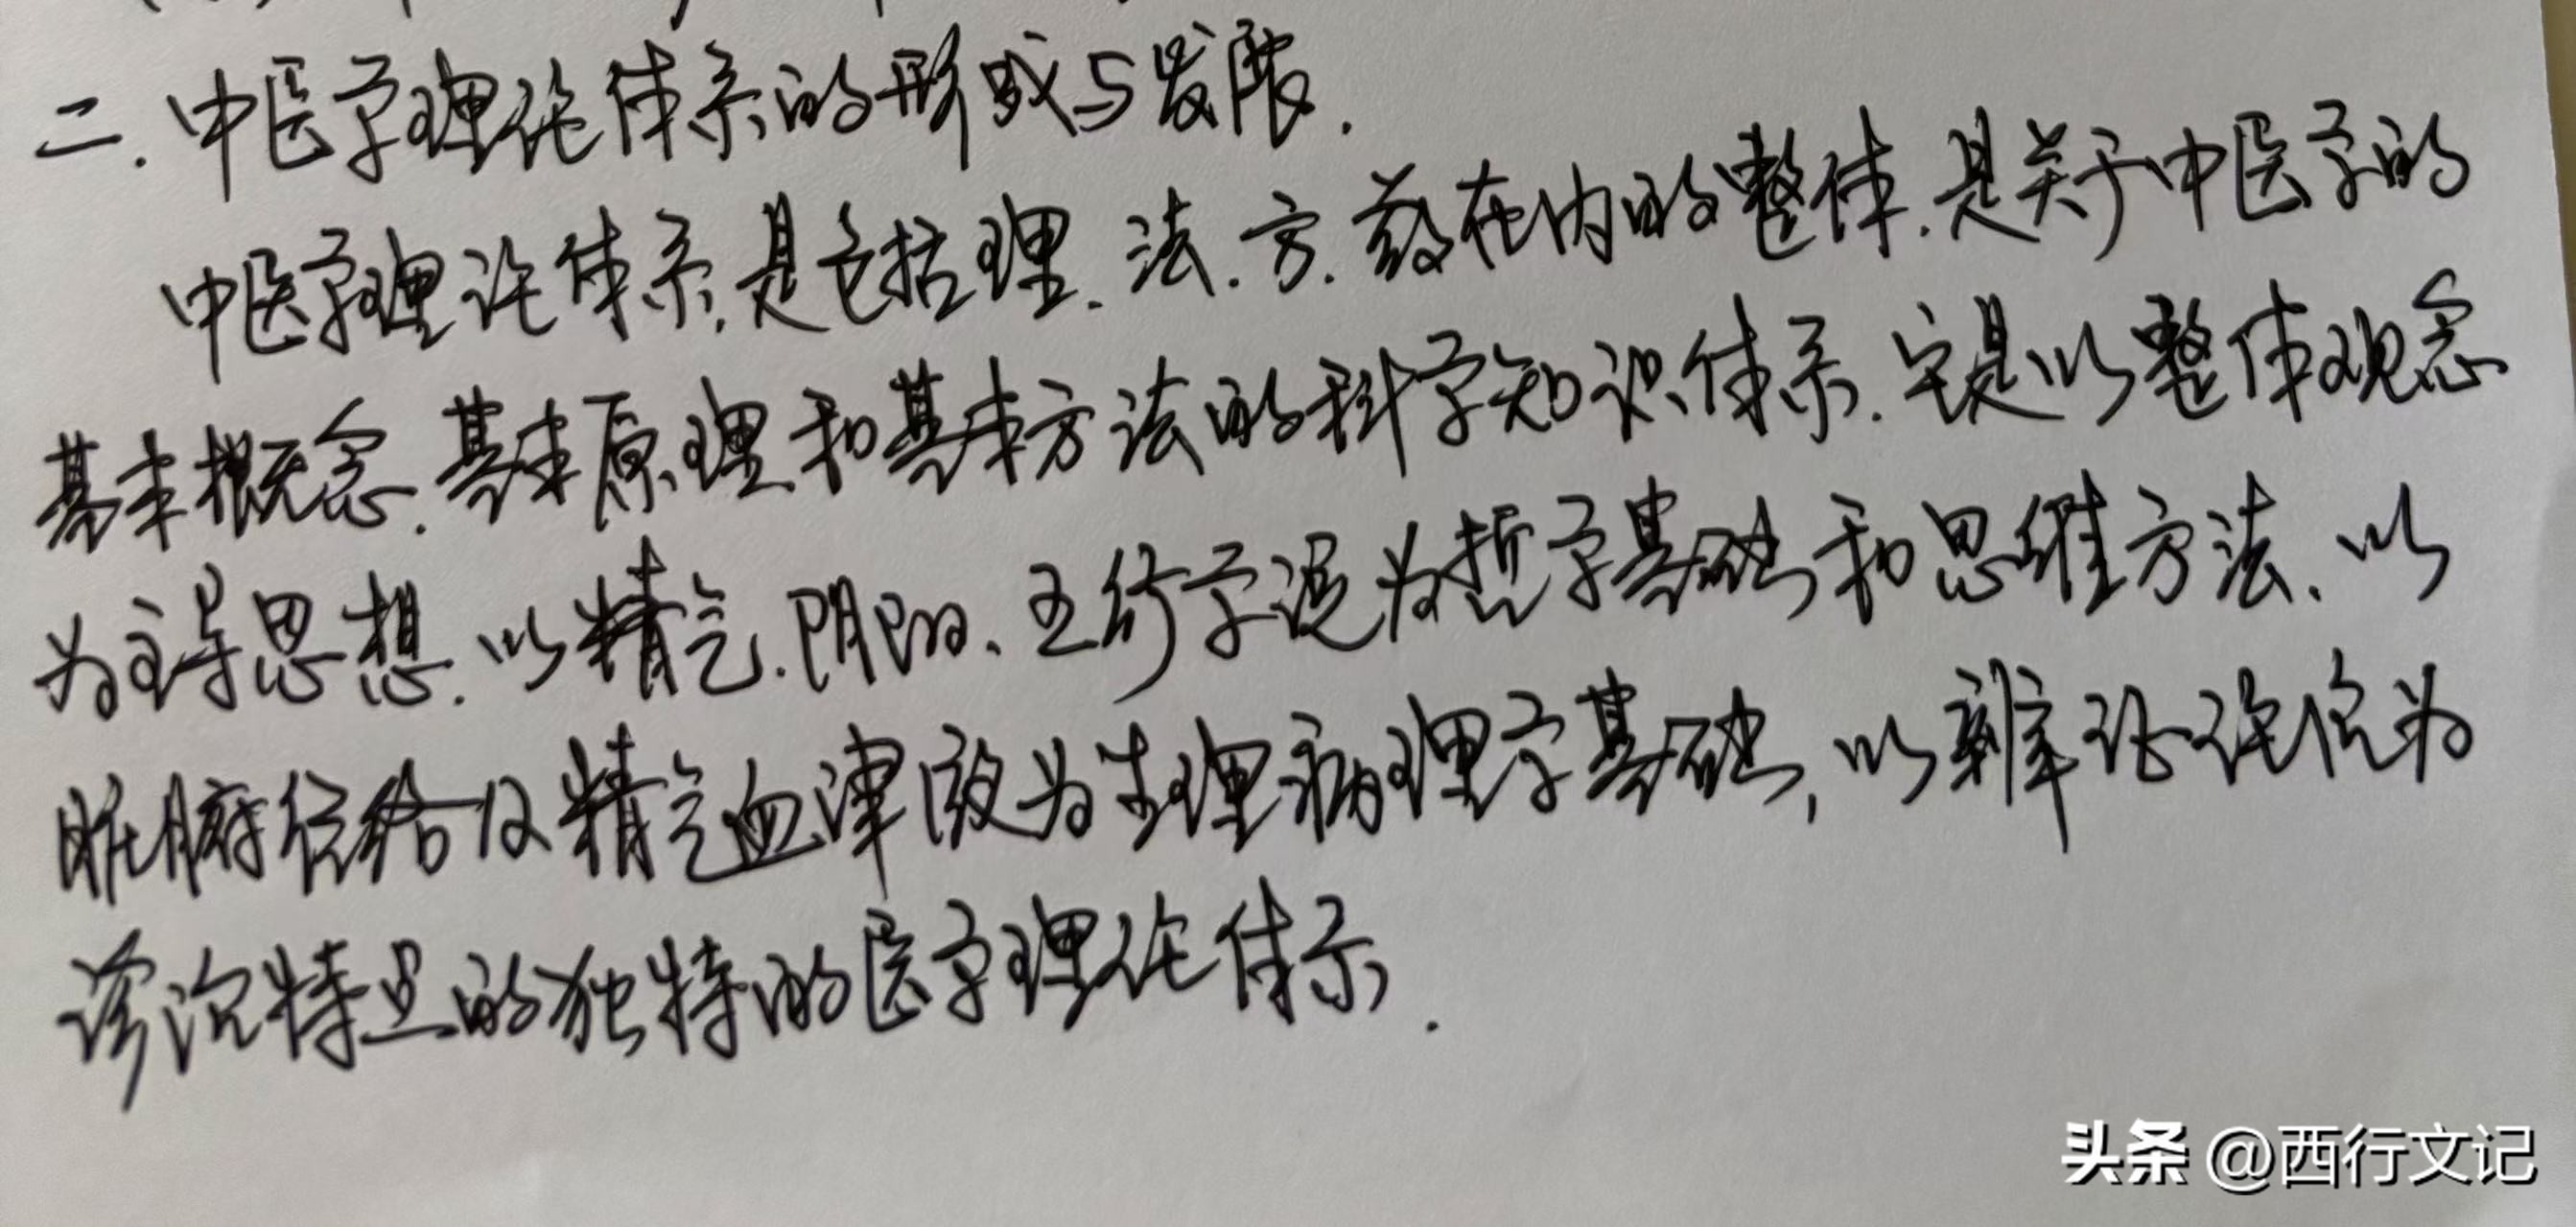 二.中医学理论体系的形成与发展.
中医学理论体系,是包括理.法.方.药在内的整体.是关于中医学的
基本概念.基本原理和基本方法的科学知识体系.它是以整体观念
为主导思想.以精气.阴阳、五行学说为哲学基础和思维方法、以
脏腑经络及精气血津液为生理病理学基础,以辨证论治为
诊治特点的独特的医学理论体系.
头条 @西行文记